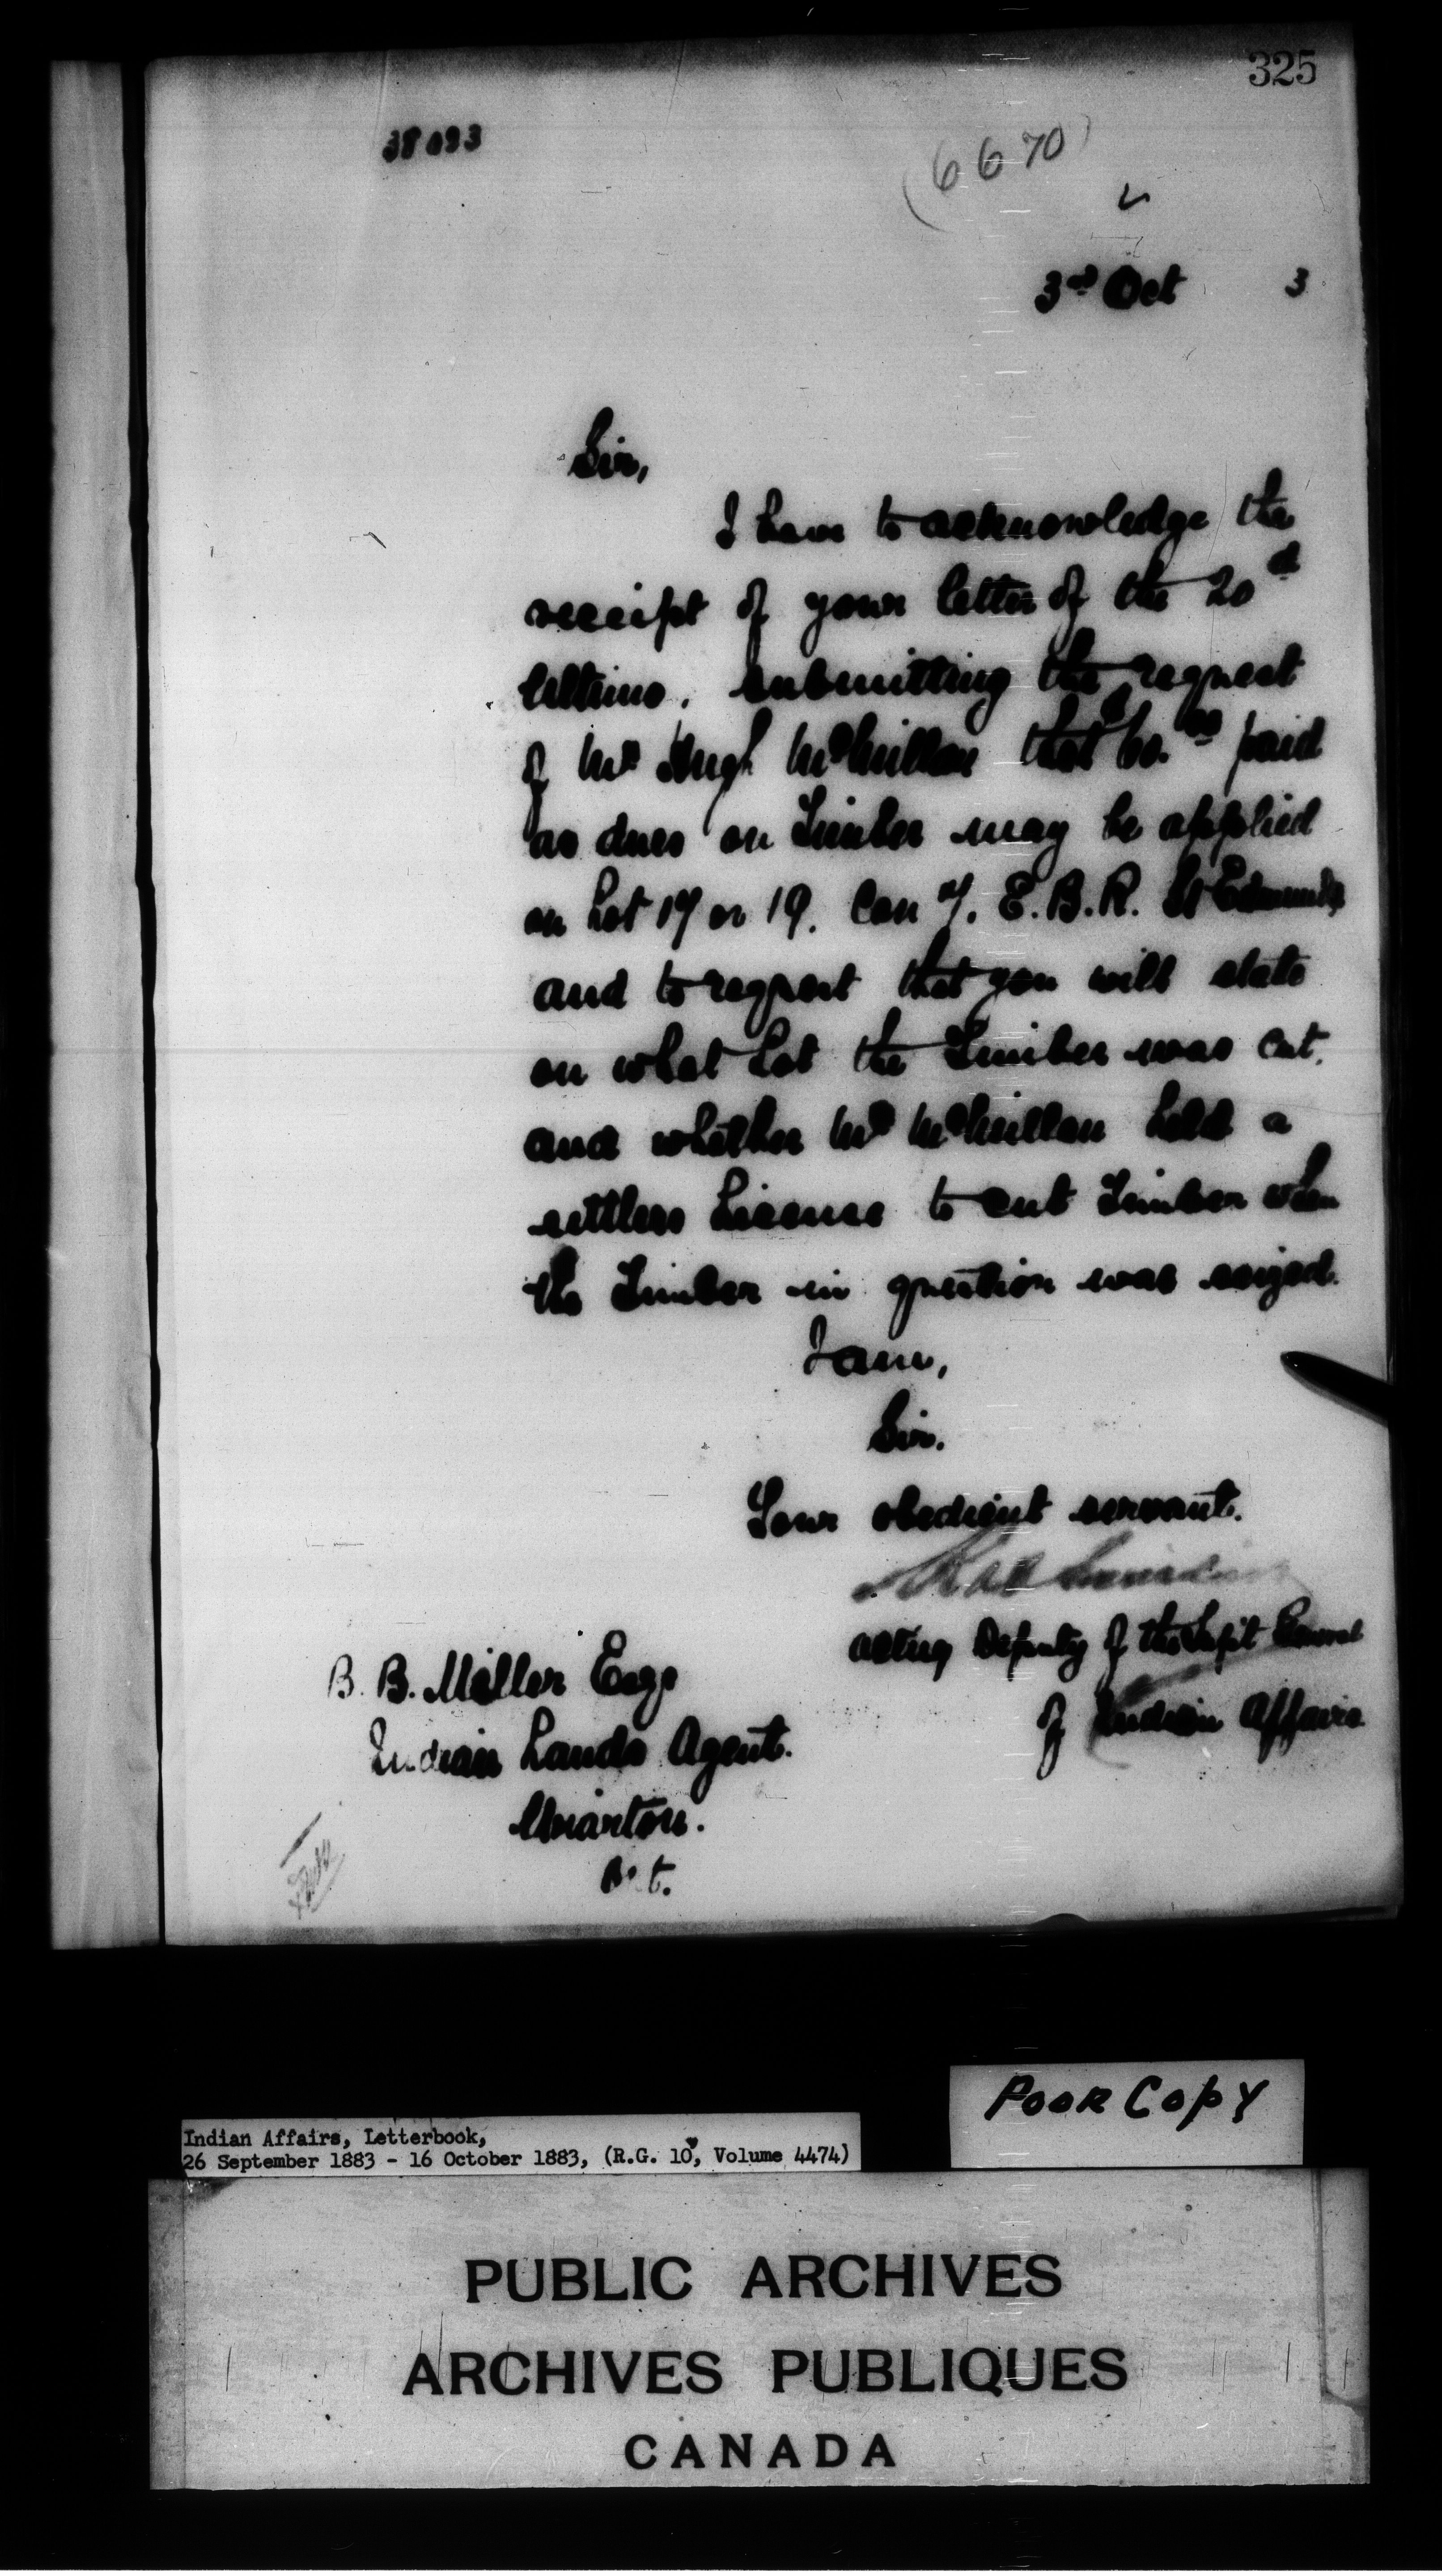 325
38093
(6670)
3rd Oct 3
Sir,
I have to acknowledge the
receipt of your letter of the 20th
Ultimo, submitting the request
of Mr Hugh McMillan that $60.00 paid
as dues on Timber may be applied
on Lot 17 or 19. Con 7. E.B.R. St Edmunds
and to request that you will state
on what Lot the Timber was cut.
and whether Mr McMillan held a
settlers License to cut Timber when
the Timber in question was seized.
I am,
Sir.
Your obedient servant.
Acting Deputy of the Supt General
of Indian Affairs
B. B. Miller Esqr
Indian Lands Agent.
Wiarton.
Ont.
Poor Copy
Indian Affairs, Letterbook,
26 September 1883 - 16 October 1883, (R.G. 10, Volume 4474)
PUBLIC ARCHIVES
ARCHIVES PUBLIQUES
CANADA